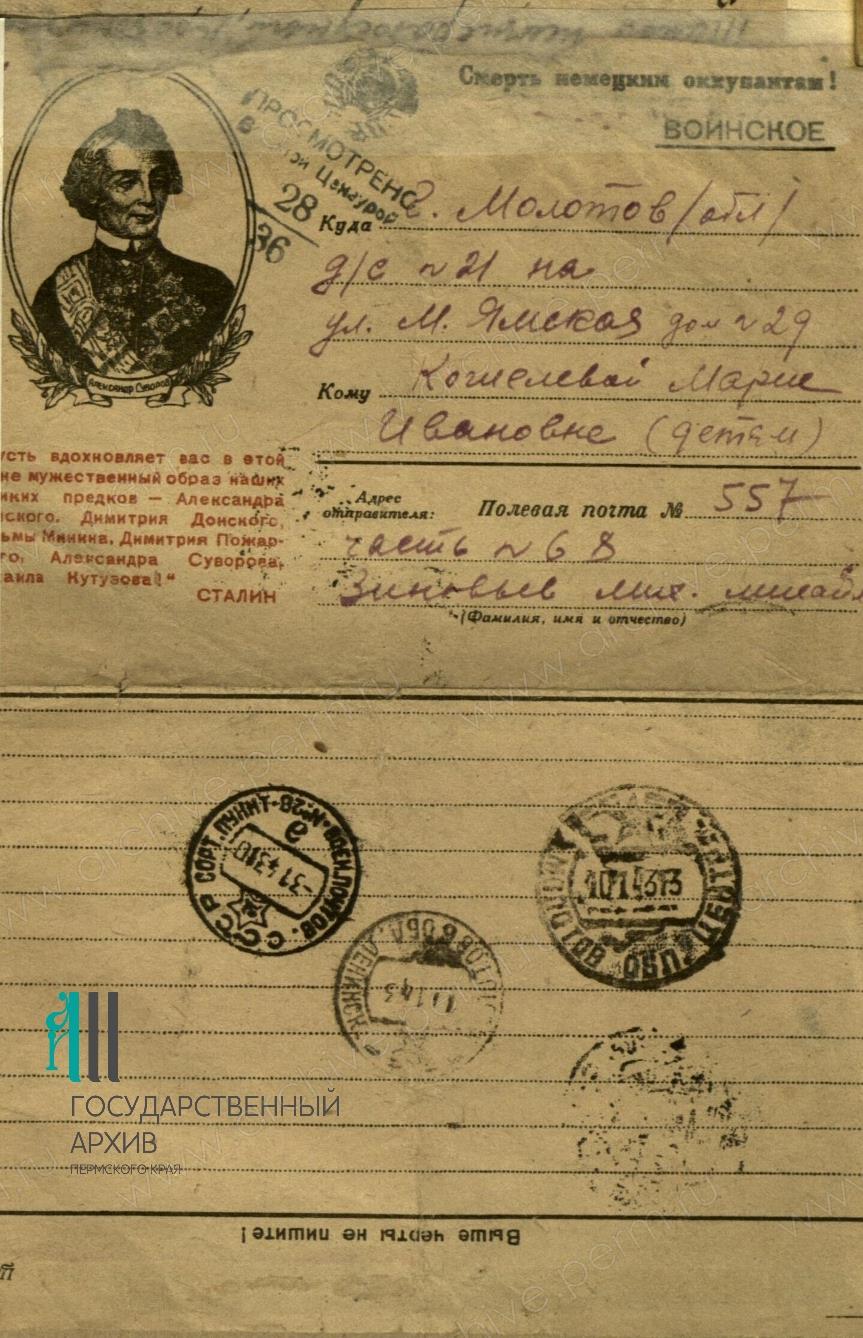 Смерть немецким оккупантам!
ВОИНСКОЕ
ПРОСМОТРЕНО
Военной Цензурой
28
36
Куда г. Молотов (обл)
д/с № 21 на
ул. М. Ямская дом № 29
Кому Кошелевой Марие
Ивановне (детям)
Александр Суворов
усть вдохновляет вас в этой
не мужественный образ наших
иких предков — Александра
ского, Димитрия Донского,
ьмы Минина, Димитрия Пожар-
го, Александра Суворова,
аила Кутузова!"
СТАЛИН
Адрес отправителя: Полевая почта № 557
часть № 68
Зиновьев Мих. Михайл
(Фамилия, имя и отчество)
СССР СОРТ. ПУНКТ-№28-ВОЕН.ПОЧТОВ.
-3 1 43 10
МОЛОТОВ ОБЛ. ЦЕНТР
10 1 43 13
МОЛОТОВ ОБЛ. ЛЕНИНСК
11 1 43
ГОСУДАРСТВЕННЫЙ
АРХИВ
ПЕРМСКОГО КРАЯ
Выше черты не пишите!